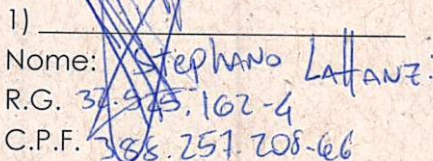 1)
Nome: Stephano Lattanz
R.G. 32.525.162-4
C.P.F. 388.257.208-66